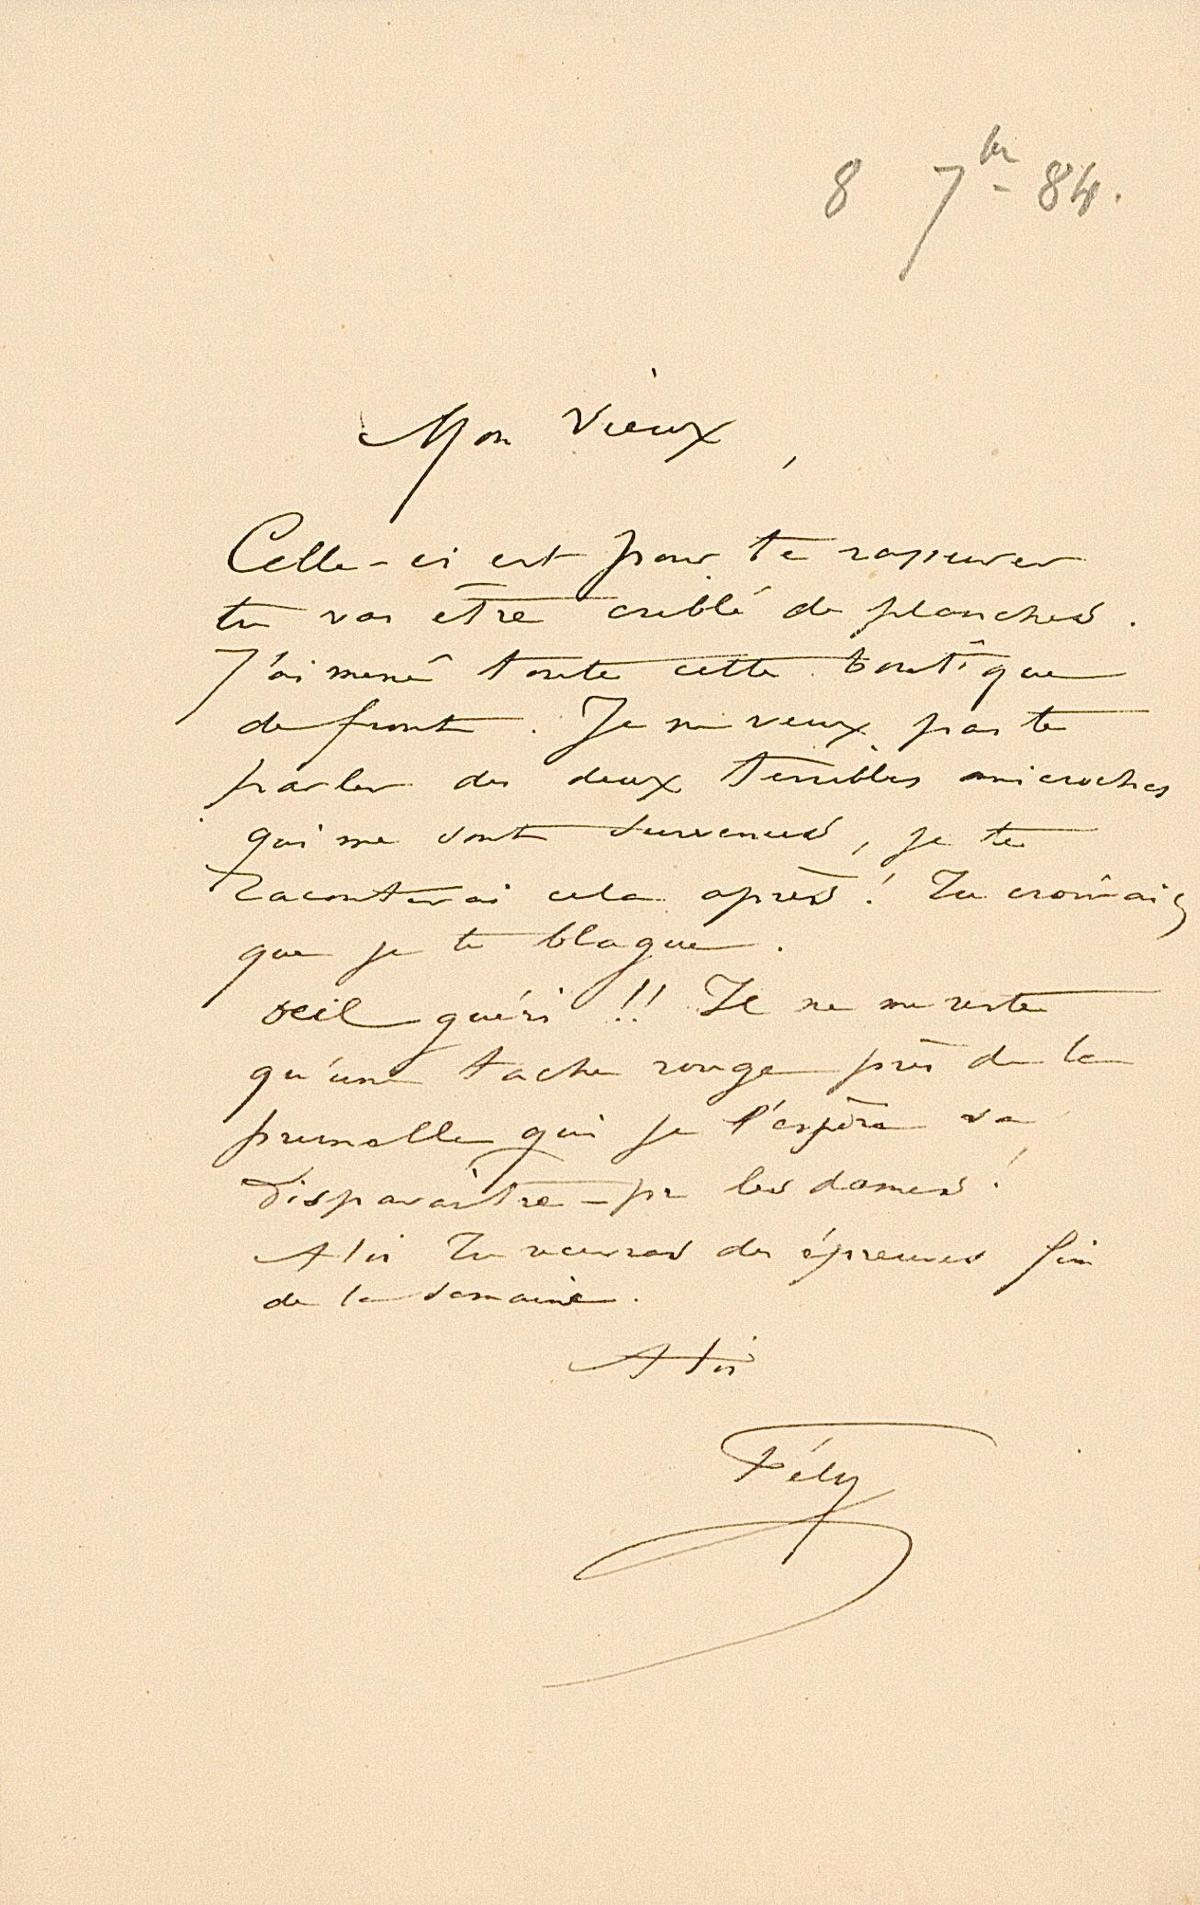 8 7bre 84.
Mon Vieux,
Celle-ci est pour te rassurer
tu vas être criblé de planches.
J'ai mené toute cette boutique
de front. Je ne veux pas te
parler des deux terribles anicroches
qui me sont survenues, je te
raconterai cela après! Tu croirais
que je te blague.
Oeil guéri!! Il ne me reste
qu'une tache rouge près de la
prunelle qui je l'espère va
disparaître – pr les dames!
A toi Tu recevras des épreuves fin
de la semaine.
A toi
Fély